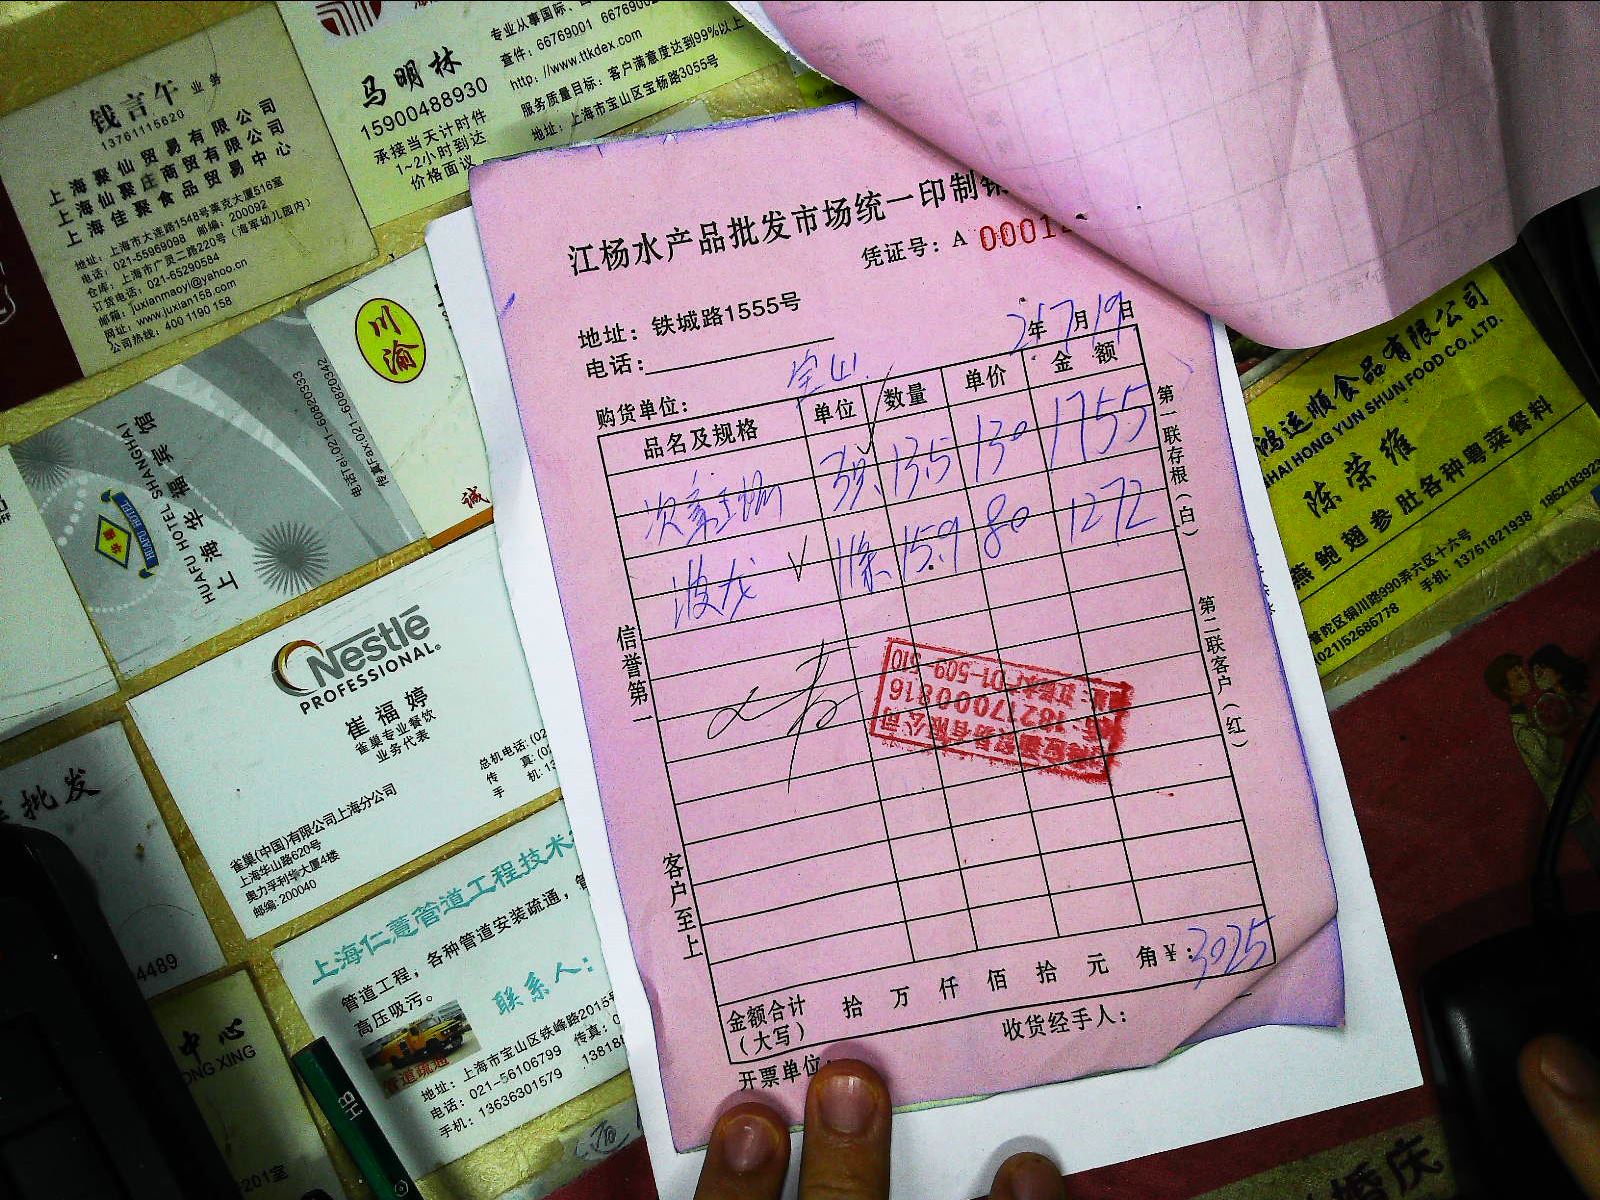 钱言午 业务
13761115620
上海聚仙贸易有限公司
上海仙聚庄商贸有限公司
上海佳聚食品贸易中心
地址：上海市大连路1548号莱克大厦516室
电话：021-55969098 邮编：200092
仓库：上海市广灵二路220号（海军幼儿园内）
订货电话：021-65290584
邮箱：juxianmaoyi@yahoo.cn
网址：www.juxian158.com
公司热线：400 1190 158
马明林
15900488930
承接当天计时件
1~2小时到达
价格面议
专业从事国际、
查件：66769001 6676900
http://www.ttkdex.com
服务质量目标：客户满意度达到99%以上
地址：上海市宝山区宝杨路3055号
川渝
诚
上海华福宾馆
HUAFU HOTEL SHANGHAI
HUAFU HOTEL
电话Tel:021-60820333
传真Fax:021-60820342
Nestlé
PROFESSIONAL
崔福婷
雀巢专业餐饮
业务代表
总机电话：(02
传 真：(02
手 机：13
雀巢(中国)有限公司上海分公司
上海华山路620号
奥力孚利华大厦4楼
邮编：200040
批发
4489
中心
ONG XING
201室
上海仁薏管道工程技术
管道工程，各种管道安装疏通，管
高压吸污。
联系人：
管道疏通
地址：上海市宝山区铁峰路2015号
电话：021-56106799 传真：0
手机：13636301579 13818
HB
江杨水产品批发市场统一印制销
凭证号：A 0001
地址：铁城路1555号
电话：
2年7月19日
购货单位：宝山
品名及规格 单位 数量 单价 金额
13.5 130 1755
波龙 11条 15.9 80 1272
第一联存根（白）
第二联客户（红）
信誉第一
客户至上
18217000816
01-509-510
金额合计（大写） 拾 万 仟 佰 拾 元 角 ￥：3025
收货经手人：
开票单位：
鸿运顺食品有限公司
HAI HONG YUN SHUN FOOD CO.,LTD.
陈荣维
燕鲍翅参肚各种粤菜餐料
普陀区铜川路990弄六区十六号
(021)52686778 手机：13761821938 1862183923
婚庆